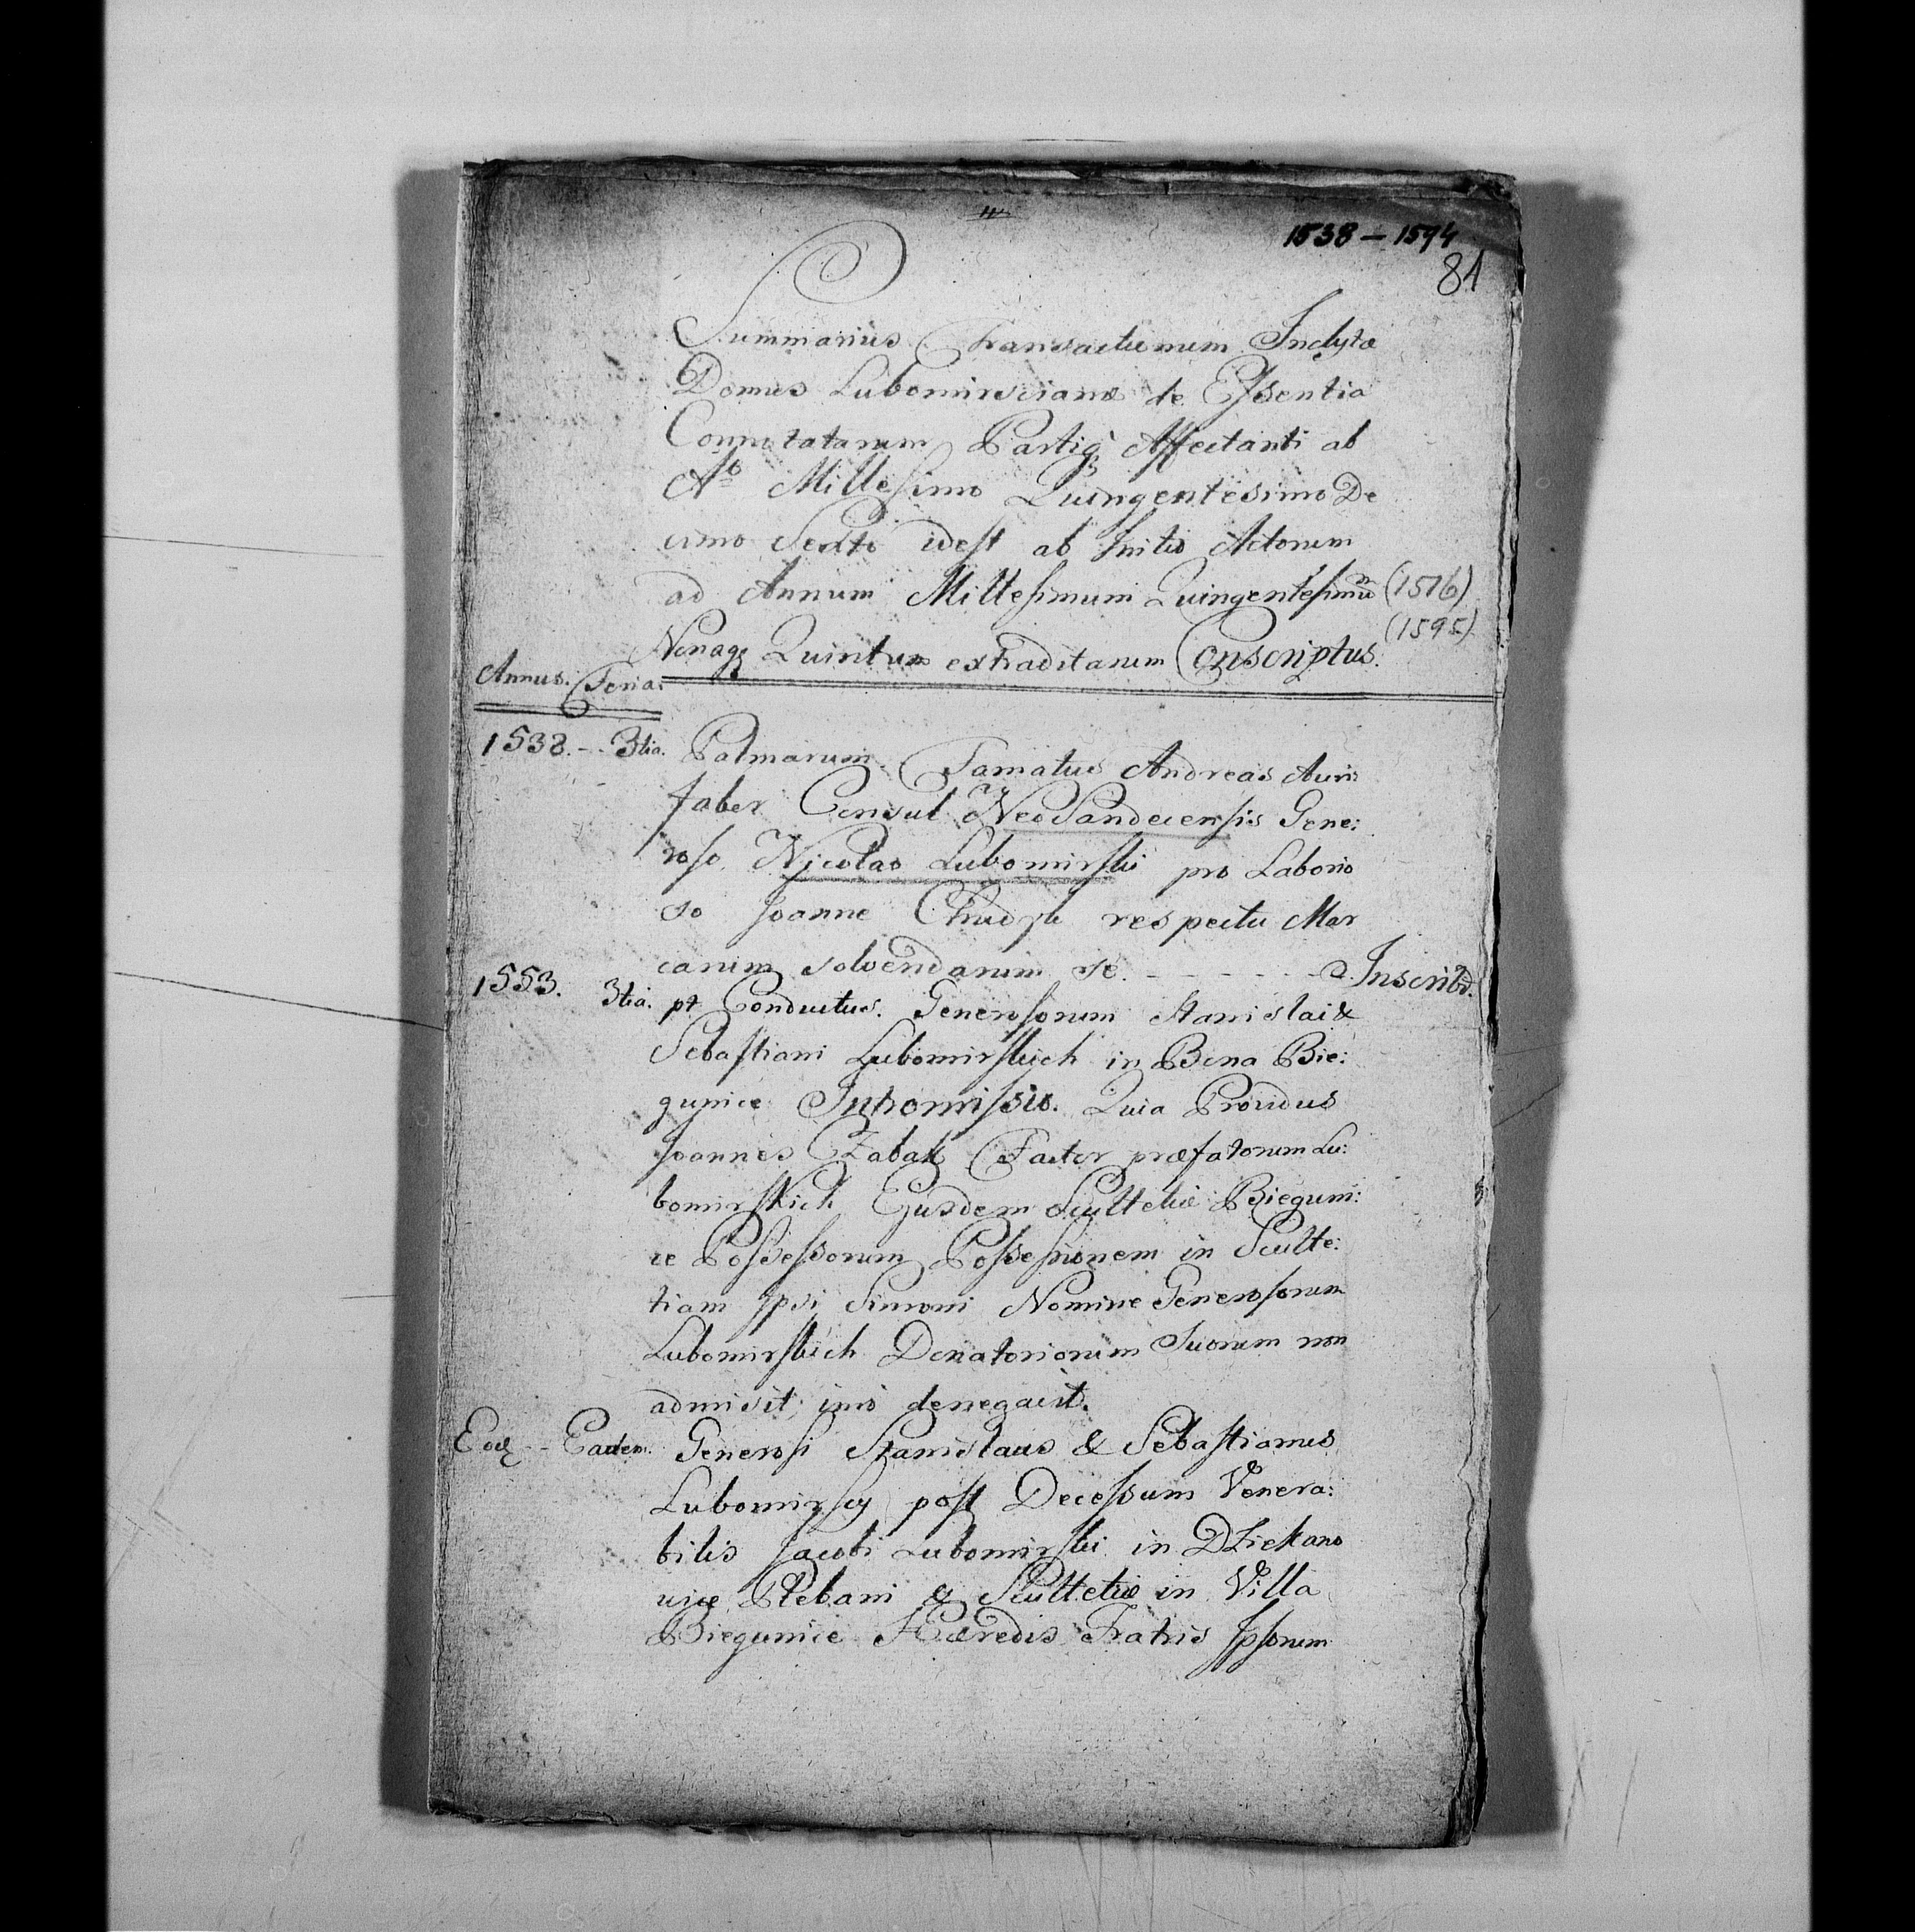 1538 – 1594
81
Summarius Transactionum Inclytæ
Domus Lubomirscianæ de Essentia
Connotatarum Partiq; Affectanti ab
A͞o Millesimo Quingentesimo De
cimo Sexto idest ab Initio Actorum
ad Annum Millesimum Quingentesimū (1516)
(1595)
Nonag; Quintum extraditarum Conscriptus.
Annus. Feria.
1538. -- 3tia. Palmarum. Famatus Andreas Auri
faber Consul NeoSandecensis Gene:
roso Nicolao Lubomirski pro Laborio
so Joanne respectu Mar
carum solvendarum se. - - - - - - Inscribd.
1553. 3tia. pt Conductus. Generosorum Stanislai &
Sebastiani Lubomirskich in Bona Bie:
gunice Intromissio. Quia Providus
Joannes Czabak Factor præfatorum Lu:
bomirskich Ejusdem Scultetiæ Bieguni:
ce Possessorum Possessionem in Sculte:
tiam Ipsi Simoni Nomine Generosorum
Lubomirskich Donatoriorum Suorum non
admisit imo denegavit.
Eoq -- Eadem. Generosi Stanislaus & Sebastianus
Lubomirscy post Decessum Venera:
bilis Jacobi Lubomirski in Dziekano
vice Plebani & Scultetiæ in Villa
Biegunice Hæredis Fratris Ipsorum